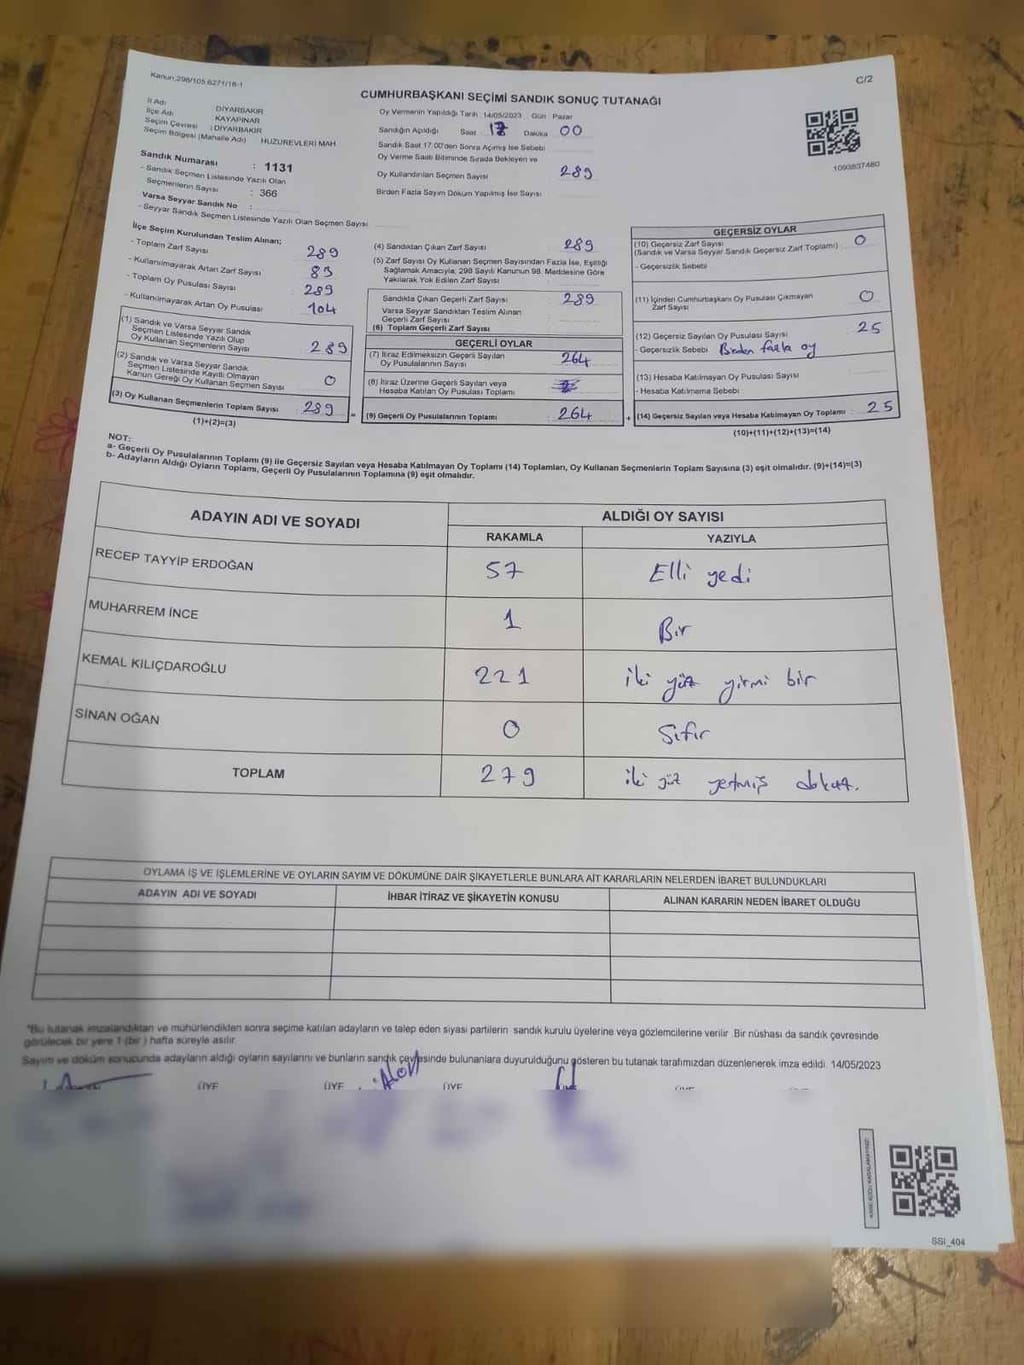 Kanun:298/105 6271/16-1
C/2
CUMHURBAŞKANI SEÇİMİ SANDIK SONUÇ TUTANAĞI
İl Adı : DİYARBAKIR
İlçe Adı : KAYAPINAR
Seçim Çevresi : DİYARBAKIR
Seçim Bölgesi (Mahalle Adı) HUZUREVLERİ MAH
Sandık Numarası : 1131
- Sandık Seçmen Listesinde Yazılı Olan
Seçmenlerin Sayısı : 366
Varsa Seyyar Sandık No :
- Seyyar Sandık Seçmen Listesinde Yazılı Olan Seçmen Sayısı
Oy Vermenin Yapıldığı Tarih 14/05/2023 Gün Pazar
Sandığın Açıldığı Saat 17 Dakika 00
Sandık Saat 17:00'den Sonra Açılmış İse Sebebi
Oy Verme Saati Bitiminde Sırada Bekleyen ve
Oy Kullandırılan Seçmen Sayısı 289
Birden Fazla Sayım Döküm Yapılmış İse Sayısı
1093837480
İlçe Seçim Kurulundan Teslim Alınan;
- Toplam Zarf Sayısı 289
- Kullanılmayarak Artan Zarf Sayısı 83
- Toplam Oy Pusulası Sayısı 289
- Kullanılmayarak Artan Oy Pusulası 104
(1) Sandık ve Varsa Seyyar Sandık
Seçmen Listesinde Yazılı Olup
Oy Kullanan Seçmenlerin Sayısı 289
(2) Sandık ve Varsa Seyyar Sandık
Seçmen Listesinde Kayıtlı Olmayan
Kanun Gereği Oy Kullanan Seçmen Sayısı 0
(3) Oy Kullanan Seçmenlerin Toplam Sayısı 289
(1)+(2)=(3)
(4) Sandıktan Çıkan Zarf Sayısı 289
(5) Zarf Sayısı Oy Kullanan Seçmen Sayısından Fazla İse, Eşitliği
Sağlamak Amacıyla, 298 Sayılı Kanunun 98. Maddesine Göre
Yakılarak Yok Edilen Zarf Sayısı
Sandıkta Çıkan Geçerli Zarf Sayısı 289
Varsa Seyyar Sandıktan Teslim Alınan
Geçerli Zarf Sayısı
(6) Toplam Geçerli Zarf Sayısı
GEÇERLİ OYLAR
(7) İtiraz Edilmeksizin Geçerli Sayılan
Oy Pusulalarının Sayısı 264
(8) İtiraz Üzerine Geçerli Sayılan veya
Hesaba Katılan Oy Pusulası Toplamı
= (9) Geçerli Oy Pusulalarının Toplamı 264
GEÇERSİZ OYLAR
(10) Geçersiz Zarf Sayısı 0
(Sandık ve Varsa Seyyar Sandık Geçersiz Zarf Toplamı)
- Geçersizlik Sebebi
(11) İçinden Cumhurbaşkanı Oy Pusulası Çıkmayan
Zarf Sayısı 0
(12) Geçersiz Sayılan Oy Pusulası Sayısı 25
- Geçersizlik Sebebi Birden fazla oy
(13) Hesaba Katılmayan Oy Pusulası Sayısı
- Hesaba Katılmama Sebebi
+ (14) Geçersiz Sayılan veya Hesaba Katılmayan Oy Toplamı 25
(10)+(11)+(12)+(13)=(14)
NOT:
a- Geçerli Oy Pusulalarının Toplamı (9) ile Geçersiz Sayılan veya Hesaba Katılmayan Oy Toplamı (14) Toplamları, Oy Kullanan Seçmenlerin Toplam Sayısına (3) eşit olmalıdır. (9)+(14)=(3)
b- Adayların Aldığı Oyların Toplamı, Geçerli Oy Pusulalarının Toplamına (9) eşit olmalıdır.
ADAYIN ADI VE SOYADI
ALDIĞI OY SAYISI
RAKAMLA YAZIYLA
RECEP TAYYİP ERDOĞAN 57 Elli yedi
MUHARREM İNCE 1 Bir
KEMAL KILIÇDAROĞLU 221 iki yüz yirmi bir
SİNAN OĞAN 0 Sıfır
TOPLAM 279 iki yüz yetmiş dokuz.
OYLAMA İŞ VE İŞLEMLERİNE VE OYLARIN SAYIM VE DÖKÜMÜNE DAİR ŞİKAYETLERLE BUNLARA AİT KARARLARIN NELERDEN İBARET BULUNDUKLARI
ADAYIN ADI VE SOYADI İHBAR İTİRAZ VE ŞİKAYETİN KONUSU ALINAN KARARIN NEDEN İBARET OLDUĞU
*Bu tutanak imzalandıktan ve mühürlendikten sonra seçime katılan adayların ve talep eden siyasi partilerin sandık kurulu üyelerine veya gözlemcilerine verilir. Bir nüshası da sandık çevresinde
görülecek bir yere 1 (bir) hafta süreyle asılır.
Sayım ve döküm sonucunda adayların aldığı oyların sayılarını ve bunların sandık çevresinde bulunanlara duyurulduğunu gösteren bu tutanak tarafımızdan düzenlenerek imza edildi. 14/05/2023
ÜYE ÜYE ÜYE
SSI_404